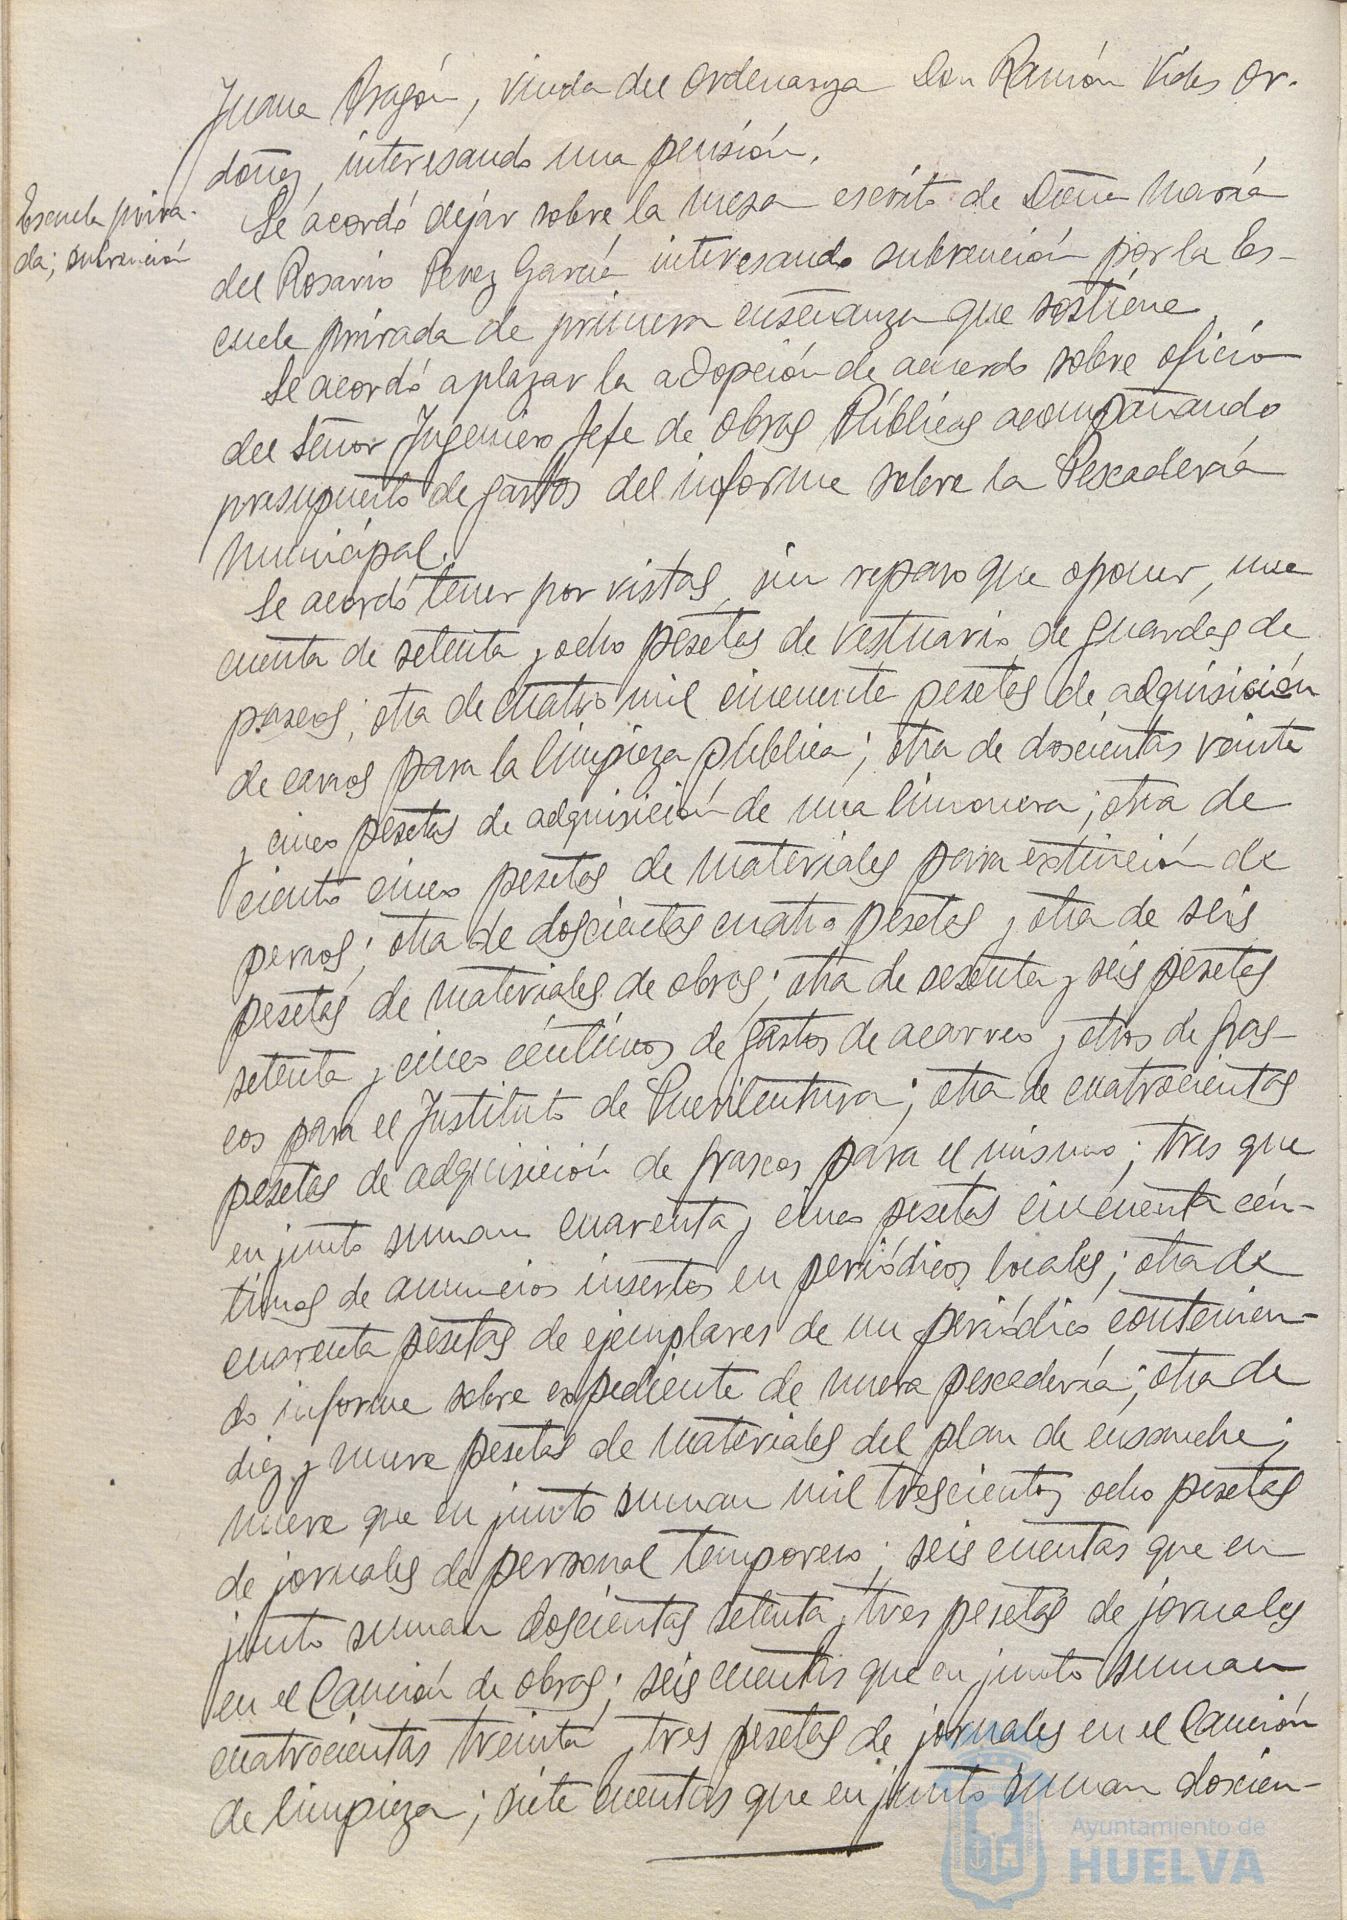 Juana Aragón, viuda del ordenanza Don Ramón Vides Or-
doñez, interesando una pensión.
Escuela priva-
da; subvención
Se acordó dejar sobre la mesa escrito de Doña María
del Rosario Perez García interesando subvención por la Es-
cuela privada de primera enseñanza que sostiene.
Se acordó aplazar la adopción de acuerdo sobre oficio
del Señor Ingeniero Jefe de Obras Públicas acompañando
presupuesto de gastos del informe sobre la Pescadería
Municipal.
Se acordó tener por vistas, sin reparo que oponer, una
cuenta de setenta y ocho pesetas de vestuario de guardas de
paseos; otra de cuatro mil cincuenta pesetas de adquisición
de carros para la limpieza pública; otra de doscientas veinte
y cinco pesetas de adquisición de una limonera; otra de
ciento cinco pesetas de materiales para extinción de
perros; otra de doscientas cuatro pesetas y otra de seis
pesetas de materiales de obras; otra de sesenta y seis pesetas
setenta y cinco céntimos de gastos de acarreo y otros de fras-
cos para el Instituto de Puericultura; otra de cuatrocientas
pesetas de adquisición de frascos para el mismo; tres que
en junto suman cuarenta y cinco pesetas cincuenta cén-
timos de anuncios insertos en periódicos locales; otra de
cuarenta pesetas de ejemplares de un periódico contenien-
do informe sobre expediente de nueva pescadería; otra de
diez y nueve pesetas de materiales del plan de ensanche;
nueve que en junto suman mil trescientas ocho pesetas
de jornales de personal temporero; seis cuentas que en
junto suman doscientas setenta y tres pesetas de jornales
en el Camión de obras; seis cuentas que en junto suman
cuatrocientas treinta y tres pesetas de jornales en el Camión
de limpieza; siete cuentas que en junto suman doscien-
Ayuntamiento de
HUELVA